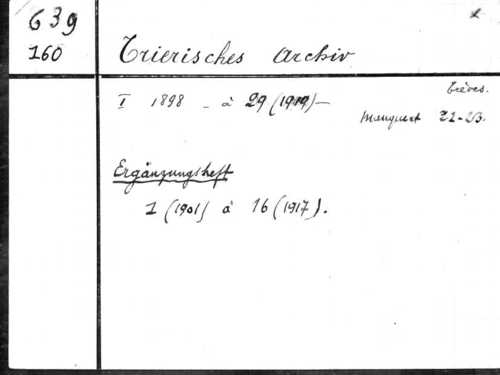 639
160
Trierisches Archiv
Trèves.
I 1898 - à 29 (1919) -
manquent 22-23.
Ergänzungsheft
1 (1901) à 16 (1917).